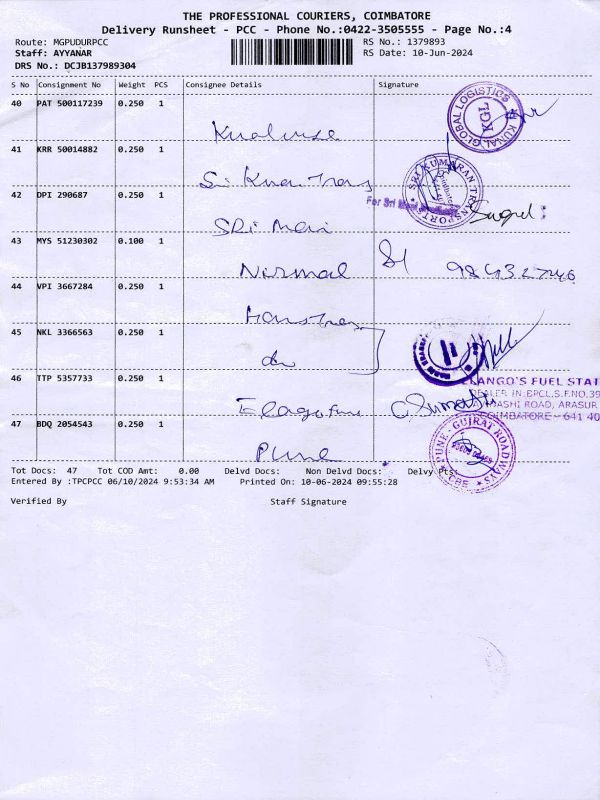 THE PROFESSIONAL COURIERS, COIMBATORE
Delivery Runsheet - PCC - Phone No.:0422-3505555 - Page No.:4
Route: MGPUDURPCC RS No.: 1379893
Staff: AYYANAR RS Date: 10-Jun-2024
DRS No.: DCJB137989304
S No Consignment No Weight PCS Consignee Details Signature
40 PAT 500117239 0.250 1
KUNAL GLOBAL LOGISTICS
KGL
41 KRR 50014882 0.250 1
SRI KUMARAN TRANSPORTS
Coimbatore
42 DPI 290687 0.250 1
For Sri
SRi Mari
43 MYS 51230302 0.100 1
Nirmal
44 VPI 3667284 0.250 1
45 NKL 3366563 0.250 1
do
46 TTP 5357733 0.250 1
ELANGO'S FUEL STAT
DEALER IN:BPCL,S.F.NO.39
ROAD, ARASUR
COIMBATORE - 641 40
47 BDQ 2054543 0.250 1
PUNE - GUJRAT ROADWAYS
CBE
Pune
Tot Docs: 47 Tot COD Amt: 0.00 Delvd Docs: Non Delvd Docs: Delvy Pts:
Entered By :TPCPCC 06/10/2024 9:53:34 AM Printed On: 10-06-2024 09:55:28
Verified By Staff Signature